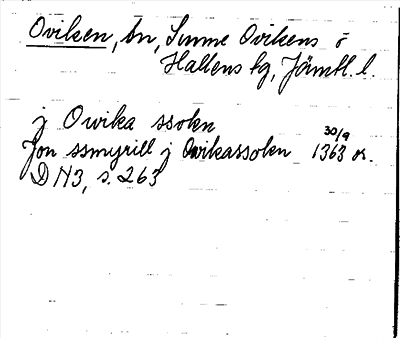 Oviken, sn, Sunne Ovikens o
Hallens tg, Jämtl. l.
j Owika ssokn
Jon ssmyrill j Owikassokn 1363 30/9 or.
DN 3, s. 263